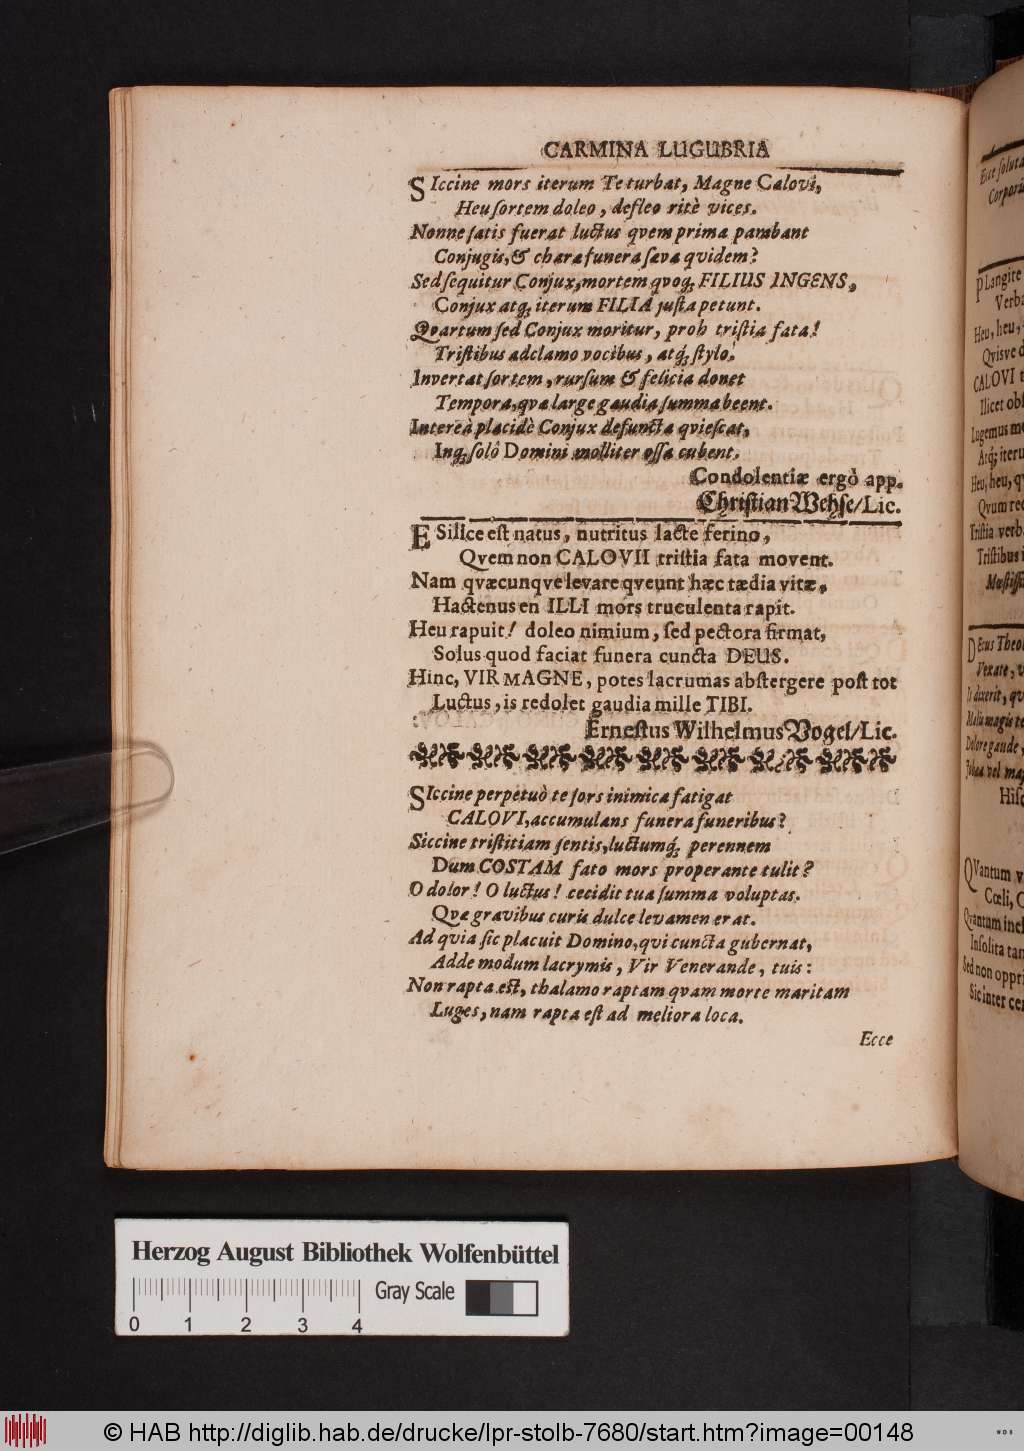 CARMINA LUGUBRIA
SIccine mors iterum Te turbat, Magne Calovi,
Heu ſortem doleo, defleo ritè vices.
Nonne ſatis fuerat luctus qvem prima parabant
Conjugis, & chara funera ſæva qvidem?
Sed ſequitur Conjux, mortem qvoq; FILIUS INGENS,
Conjux atq; iterum FILIA juſta petunt.
Qvartum ſed Conjux moritur, proh triſtia fata!
Triſtibus adclamo vocibus, atq; ſtylo.
Invertat ſortem, rurſum & felicia donet
Tempora, qvæ large gaudia ſumma beent.
Intereà placidè Conjux defuncta qvieſcat,
Inq; ſolô Domini molliter oſſa cubent.
Condolentiæ ergò app.
Chriſtian Wehſe/Lic.
E Silice eſt natus, nutritus lacte ferino,
Qvem non CALOVII triſtia fata movent.
Nam qvæcunqve levare qveunt hæc tædia vitæ,
Hactenus en ILLI mors truculenta rapit.
Heu rapuit! doleo nimium, ſed pectora firmat,
Solus quod faciat funera cuncta DEUS.
Hinc, VIR MAGNE, potes lacrumas abſtergere poſt tot
Luctus, is redolet gaudia mille TIBI.
Erneſtus Wilhelmus Vogel/Lic.
SIccine perpetuò te ſors inimica fatigat
CALOVI, accumulans funera funeribus?
Siccine triſtitiam ſentis, luctumq; perennem
Dum COSTAM fato mors properante tulit?
O dolor! O luctus! cecidit tua ſumma voluptas.
Qvæ gravibus curis dulce levamen erat.
Ad qvia ſic placuit Domino, qvi cuncta gubernat,
Adde modum lacrymis, Vir Venerande, tuis:
Non rapta eſt, thalamo raptam qvam morte maritam
Luges, nam rapta eſt ad meliora loca.
Ecce
Ecce ſoluta
PLangite
Heu, heu,
CALOVI
Lugemus
Heu, heu,
Qvum
Triſtia verb
Triſtibus
DEtus
Malis magis te
Dolore gaude,
QVantum
Cœli,
Qvantum
Inſolita tan
Sed non oppri
Sic inter
Herzog August Bibliothek Wolfenbüttel
Gray Scale
0 1 2 3 4
© HAB http://diglib.hab.de/drucke/lpr-stolb-7680/start.htm?image=00148